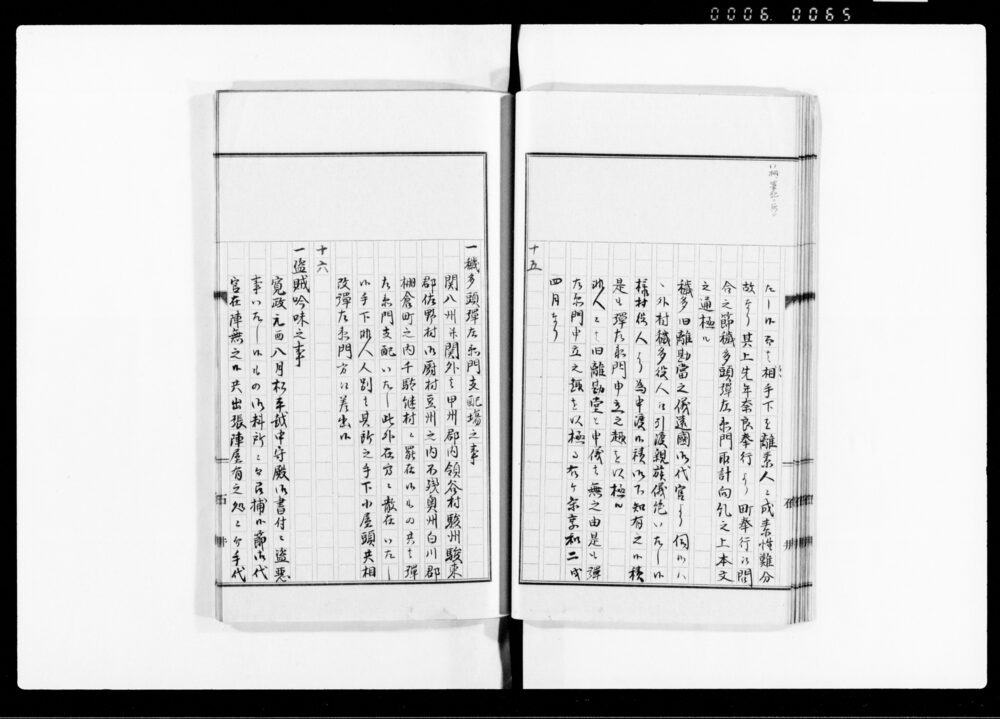 0006 0065
たし候而も相手下を離素人ニ成素性難分
故なり其上先年奈良奉行より町奉行江問
合之節穢多頭弾左衛門取計向糺之上本文
之通極ル
穢多旧離勘当之儀遠國御代官より伺候ハ
、外村穢多役人江引渡親族儀絶いたし候
様村役人より為申渡候積御下知有之候積
是も弾左衛門申立之趣を以極ル
非人とも旧離勘当と申儀も無之由是も弾
左衛門申立之趣を以極る右ケ条享和二戌
四月なり
十五
一穢多頭弾左衛門支配場之事
関八州并関外も甲州郡内領谷村駿州駿東
郡佐野村御厨村豆州之内不残奥州白川郡
棚倉町之内千駄継村ニ罷在候もの共も弾
左衛門支配いたし此外在方ニ散在いたし
候手下非人人別も其所之手下小屋頭共相
改弾左衛門方江差出候
十六
一盗賊吟味之事
寛政元酉八月松平越中守殿御書付ニ盗悪
事いたし候もの御料所ニ而召捕候節御代
官在陣無之候共出張陣屋有之処ニ而手代